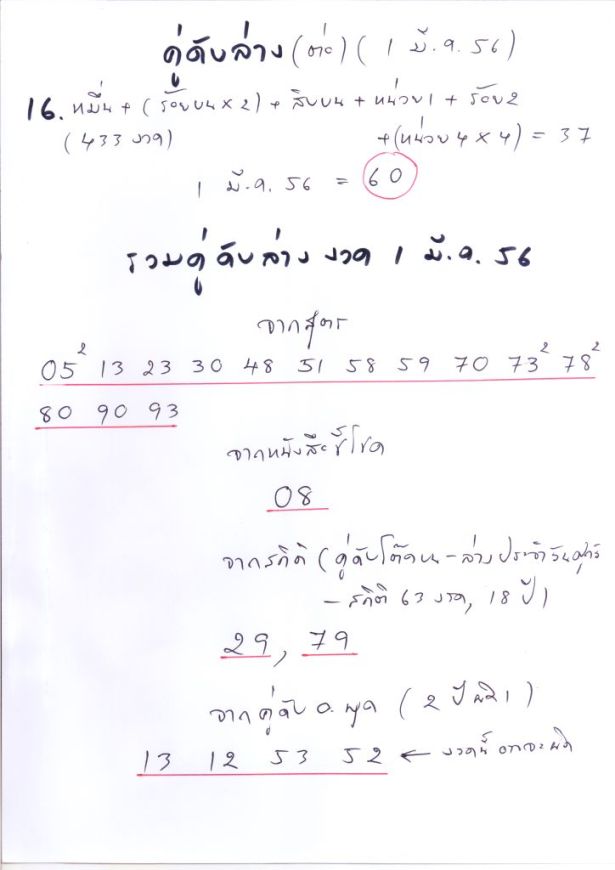 คู่ดับล่าง (ต่อ) ( 1 มี.ค. 56 )
16. หมื่น + ( ร้อยบน x 2 ) + สิบบน + หน่วย 1 + ร้อย 2
( 433 งวด ) + (หน่วย 4 x 4 ) = 37
1 มี.ค. 56 = 60
รวมคู่ดับล่าง งวด 1 มี.ค. 56
จากสูตร
05² 13 23 30 48 51 58 59 70 73² 78²
80 90 93
จากหนังสือชี้โชค
08
จากสถิติ ( คู่ดับโต๊ดบน - ล่าง ประจำวันศุกร์
- สถิติ 63 งวด, 18 ปี )
29 , 79
จากคู่ดับ อ. ( 2 ปี ผิด 1 )
13 12 53 52 ← งวดนี้ อาจจะผิด